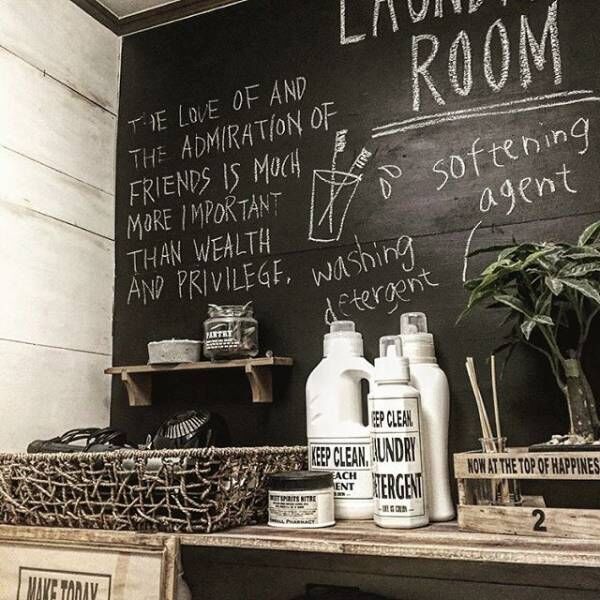 LAUNDRY
ROOM
THE LOVE OF AND
THE ADMIRATION OF
FRIENDS IS MUCH
MORE IMPORTANT
THAN WEALTH
AND PRIVILEGE.
softening
agent
washing
detergent
PANTRY
KEEP CLEAN.
EACH
ENT
EEP CLEAN.
AUNDRY
TERGENT
SWEET SPIRITS NITRE
PHARMACY
NOW AT THE TOP OF HAPPINES
2
MAKE TODAY